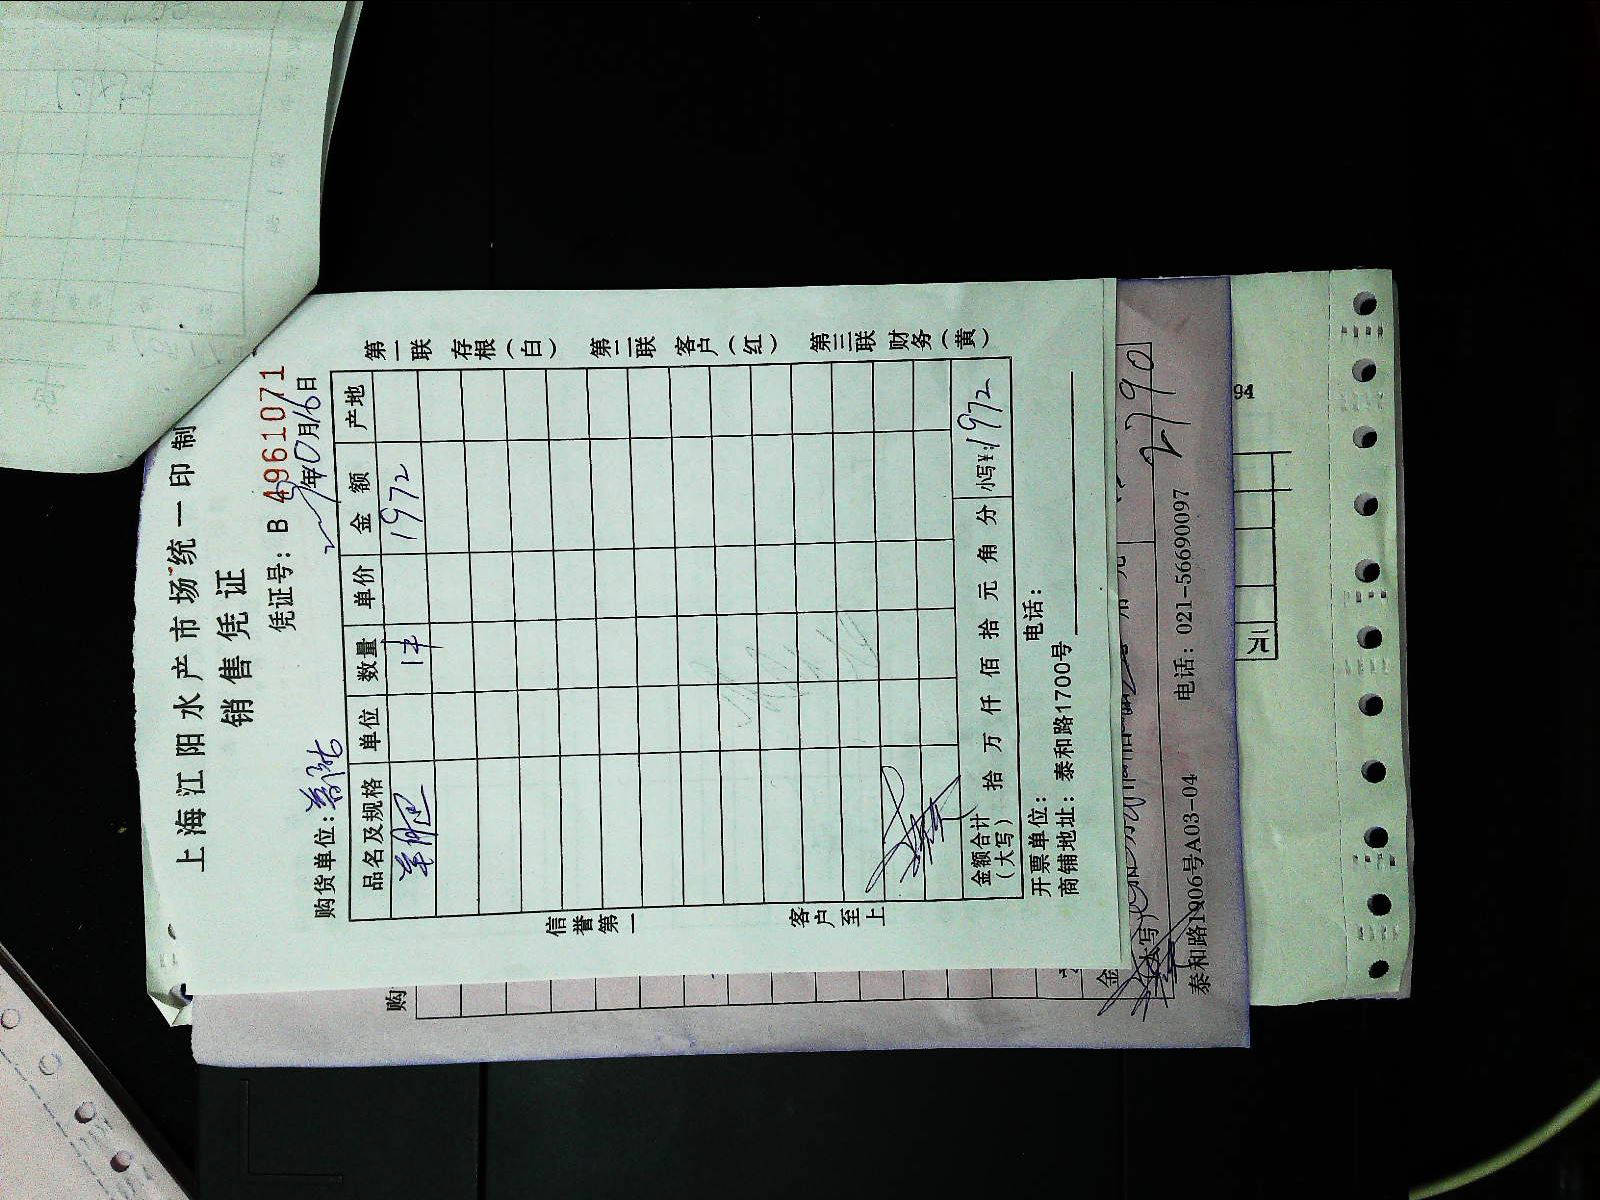 上海江阳水产市场统一印制
销售凭证
凭证号: B 4961071
购货单位:
年10月16日
品名及规格 单位 数量 单价 金额 产地
1件 1972
金额合计(大写) 拾 万 仟 佰 拾 元 角 分 小写¥:1972
开票单位: 电话:
商铺地址: 泰和路1700号
信誉第一 客户至上
第一联 存根(白) 第二联 客户(红) 第三联 财务(黄)
购
2790
泰和路1906号A03-04 电话: 021-56690097
94
元